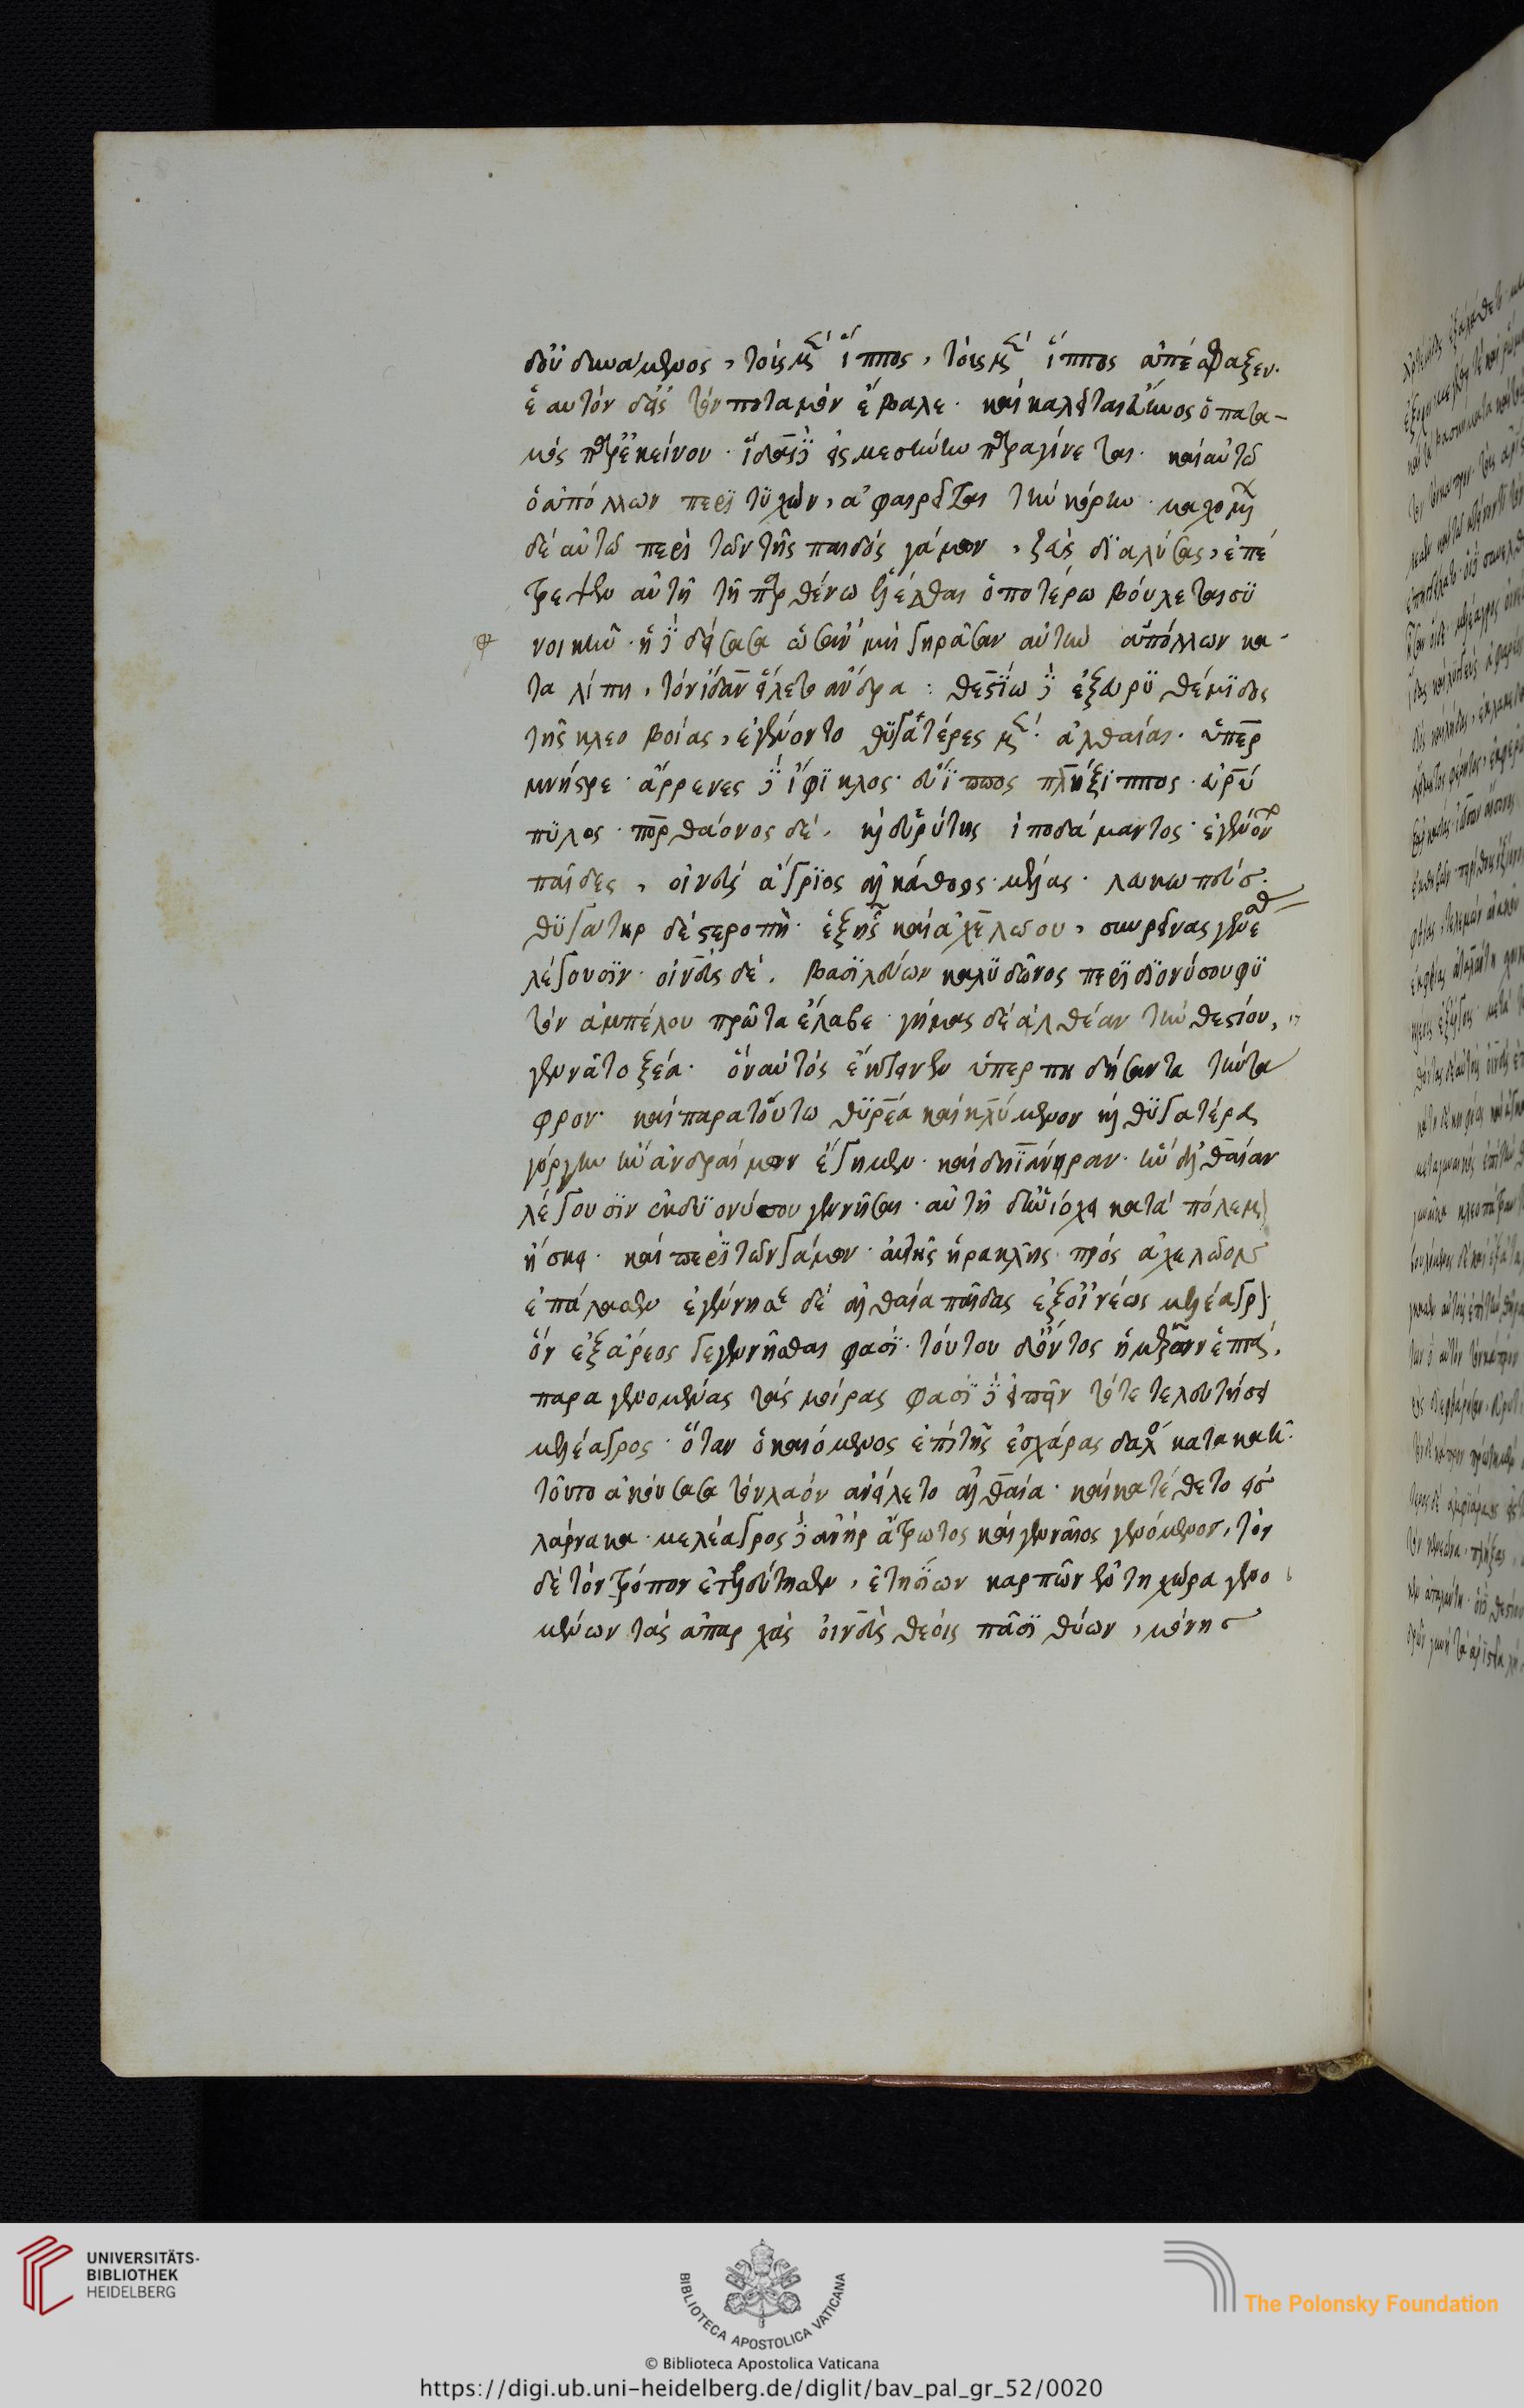 δοῦ δυνάμενος, τοὺς μὲν ἵππους, τοὺς μὲν ἵππους ἀπέσφαξεν·
ἑαυτὸν δ' εἰς τὸν ποταμὸν ἔβαλε· καὶ καλεῖται Εὔηνος ὁ ποτα-
μὸς ἀπ' ἐκείνου· Ἴδας δὲ εἰς Μεσσήνην παραγίνεται· καὶ αὐτῷ
ὁ Ἀπόλλων περιτυχὼν, ἀφαιρεῖται τὴν κόρην· μαχομένων
δὲ αὐτῶν περὶ τῶν τῆς παιδὸς γάμων, Ζεὺς διαλύσας, ἐπέ
τρεψεν αὐτῇ τῇ παρθένῳ ἑλέσθαι ὁποτέρῳ βούλεται συ
νοικεῖν· ἡ δὲ δείσασα ὡς ἂν μὴ γηρᾶσαν αὐτὴν Ἀπόλλων κα-
ταλίπῃ, τὸν Ἴδαν εἵλετο ἄνδρα: Θεστίῳ δὲ ἐξ Εὐρυθέμιδος
τῆς Κλεοβοίας, ἐγένοντο θυγατέρες μὲν· Ἀλθαία· Ὑπερ
μνήστρε· ἄρρενες δὲ Ἴφικλος· Εὔιππος Πλήξιππος· Εὐρύ
πυλος· Πορθάονος δὲ· καὶ Εὐρύτης Ἱποδάμαντος· ἐγένοντο
παῖδες, Οἰνεὺς Ἄγριος Ἀλκάθοος· Μέλας· Λευκωπεύς·
θυγάτηρ δὲ Στερόπη· ἐξ ἧς καὶ Ἀχελώου, σειρῆνας γενέσθαι
λέγουσιν· Οἰνεὺς δὲ· βασιλεύων Καλυδῶνος περὶ Διονύσου φυ
τὸν ἀμπέλου πρῶτα ἔλαβε· γήμας δὲ Ἀλθέαν τὴν Θεστίου,
γεννᾶτοξέα· ὃν αὐτὸς ἔκτεινεν ὑπερπηδήσαντα τὴν τα
φρον· καὶ παρὰ τοῦτω Θυρέα καὶ Κλύμενον καὶ θυγατέρα
Γόργην ἣν Ἀνδραίμων ἔγημεν· καὶ Δηιάνηραν· ἣν Ἀλθαίαν
λέγουσιν ἐκ Διονύσου γεννῆσαι· αὐτὴ δ' ἡνιόχει κατὰ πόλεμον
ἤσκει· καὶ περὶ τῶν γάμων· αὐτῆς Ἡρακλῆς πρὸς Ἀχελῶον
ἐπάλαισεν ἐγέννησε δὲ Ἀλθαία παῖδας ἐξ Οἰνέως Μελέαγρον
ὃν ἐξ Ἄρεος γεγεννῆσθαι φασὶ· τούτου δ' ὄντος ἡμερῶν ἑπτά,
παραγενομένας τὰς μοίρας φασὶ δὲ εἰπεῖν τότε τελευτήσει
Μελέαγρος· ὅταν ὁ καιόμενος ἐπὶ τῆς ἐσχάρας δαλὸς κατακαῇ·
τοῦτο ἀκούσασα τὸν λαὸν ἀνείλετο Ἀλθαία· καὶ κατέθετο εἰς
λάρνακα· Μελέαγρος δὲ ἀνὴρ ἄτρωτος καὶ γενναῖος γενόμενος, τόν
δε τὸν τρόπον ἐτελεύτησεν, ἐτησίων καρπῶν ἐν τῇ χώρᾳ γενο
μένων τὰς ἀπαρχὰς Οἰνεὺς θεοῖς πᾶσι θύων, μόνης
UNIVERSITÄTS-
BIBLIOTHEK
HEIDELBERG
BIBLIOTECA APOSTOLICA VATICANA
The Polonsky Foundation
© Biblioteca Apostolica Vaticana
https://digi.ub.uni-heidelberg.de/diglit/bav_pal_gr_52/0020